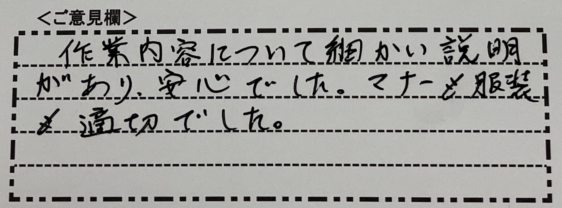 ＜ご意見欄＞
作業内容について細かい説明
があり、安心でした。マナーも服装
も適切でした。